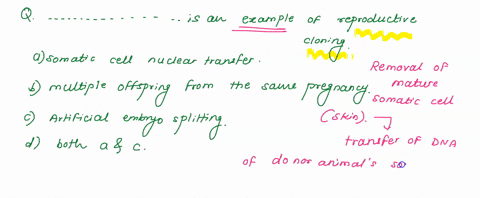 Q. .................. is an example of reproductive
cloning.
a) somatic cell nuclear transfer.
b) multiple offspring from the same pregnancy.
c) Artificial embryo splitting.
d) both a & c.
Removal of
mature
somatic cell
(skin).
transfer of DNA
of donor animal's so